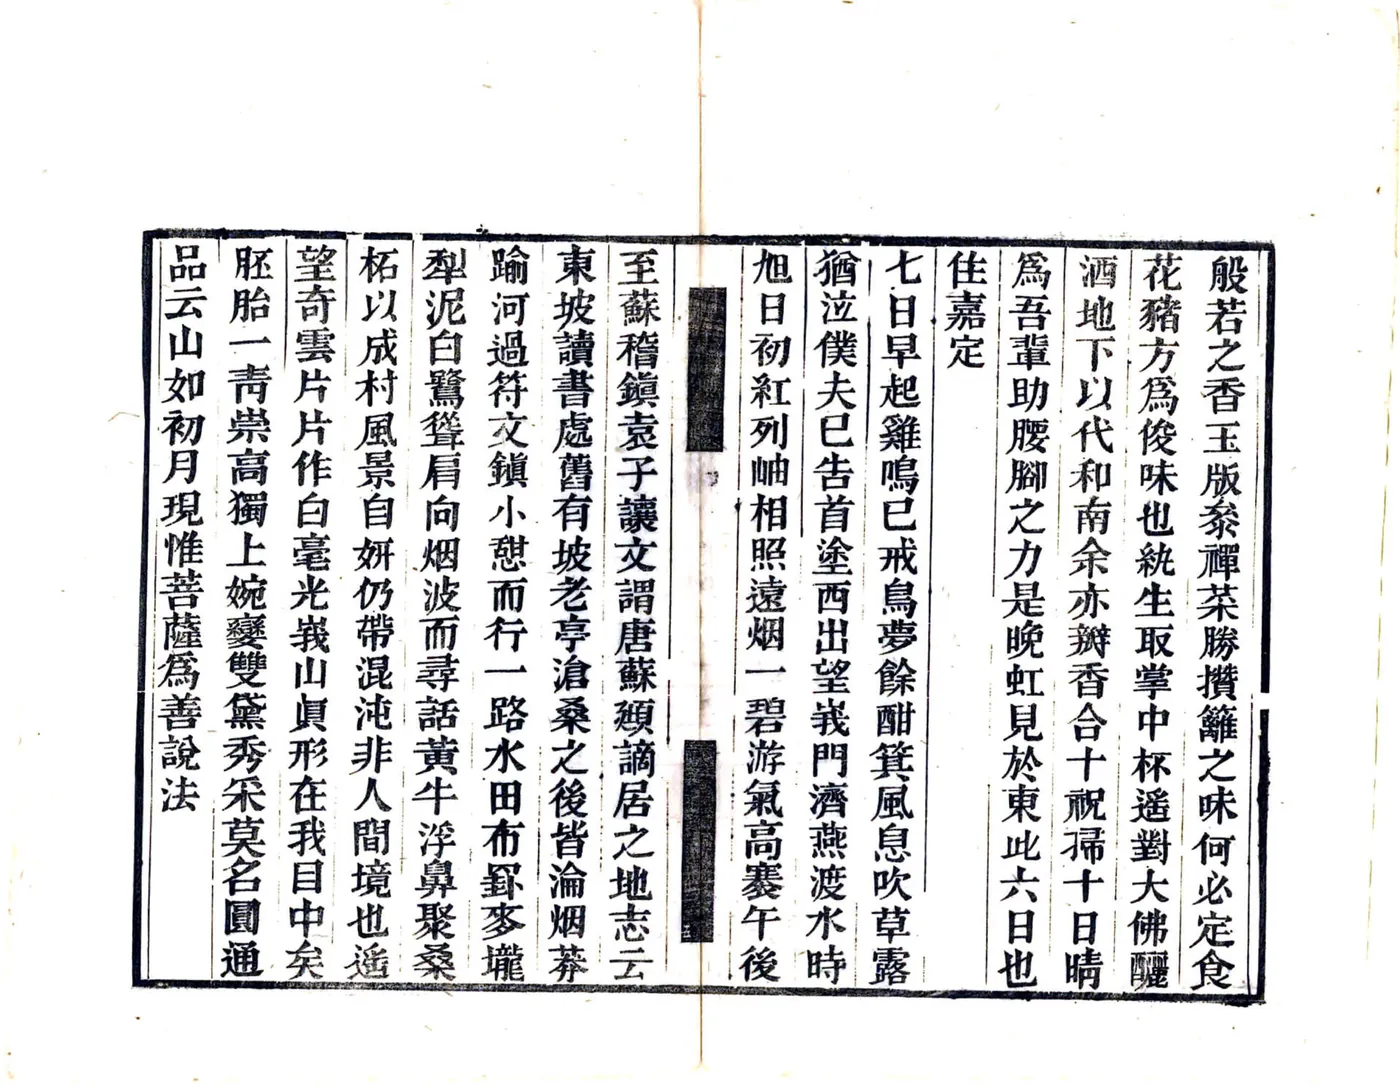 般若之香玉版叅禪菜勝攢籬之味何必定食
花豬方爲俊味也紈生取掌中杯遙對大佛釃
酒地下以代和南余亦瓣香合十祝掃十日晴
爲吾輩助腰腳之力是晚虹見於東此六日也
住嘉定
七日早起雞鳴已戒鳥夢餘酣箕風息吹草露
猶泣僕夫已告首塗西出望峩門濟燕渡水時
旭日初紅列岫相照遠烟一碧游氣高褰午後
至蘇稽鎭袁子讓文謂唐蘇頲謫居之地志云
東坡讀書處舊有坡老亭滄桑之後皆淪烟莽
踰河過符文鎭小憇而行一路水田布罫麥壠
犁泥白鷺聳肩向烟波而尋話黃牛浮鼻聚桑
柘以成村風景自姸仍帶混沌非人間境也遙
望奇雲片片作白毫光峩山眞形在我目中矣
胚胎一靑崇高獨上婉孌雙黛秀采莫名圓通
品云山如初月現惟菩薩爲善說法